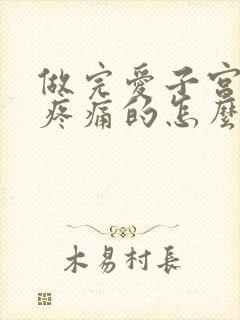 做完愛子宮
疼痛的怎麼
木易村長